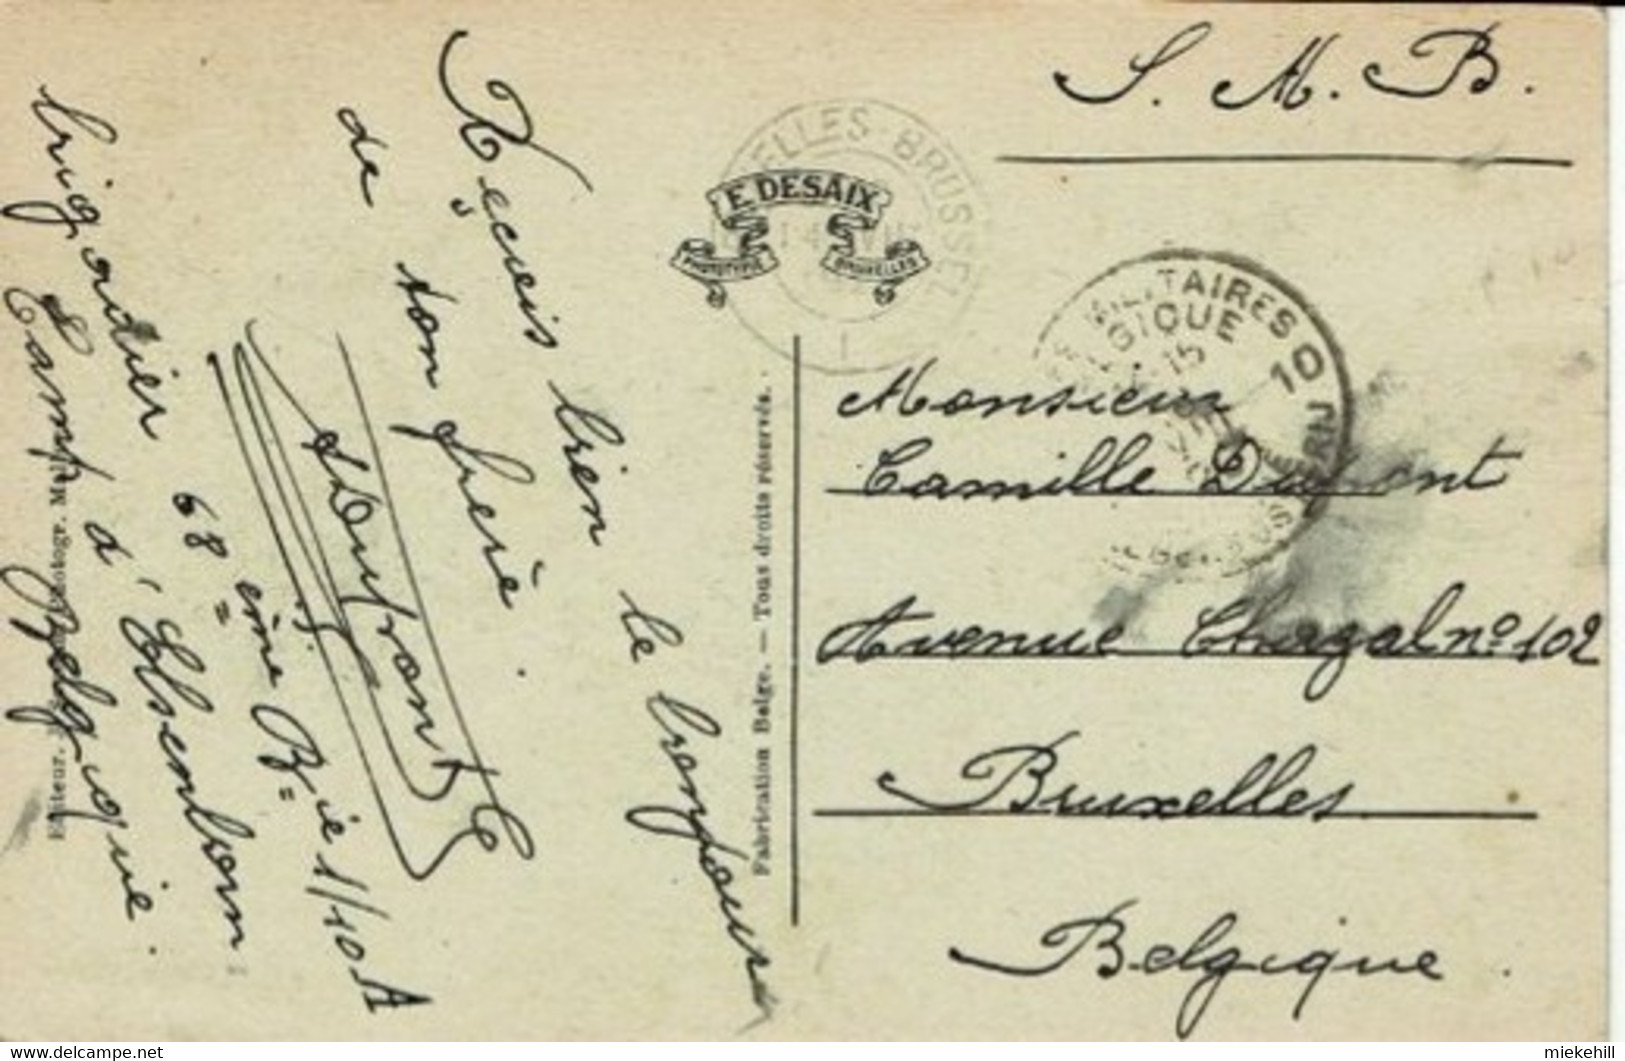 S. M. B.
E. DESAIX
PHOTOTYPIE
BRUXELLES
ELLES - BRUSSEL
14
1
MILITAIRES
GIQUE
15
10
Reçois bien le bonjour
de ton frère.
ADufrant
brigadier 68ème Bie 1/10A
Camp d'Elsenborn
Belgique.
Editeur.
Photogr.
Fabrication Belge. — Tous droits réservés.
Monsieur
Camille
Avenue Chazal nº 102
Bruxelles
Belgique.
© delcampe.net
miekehill